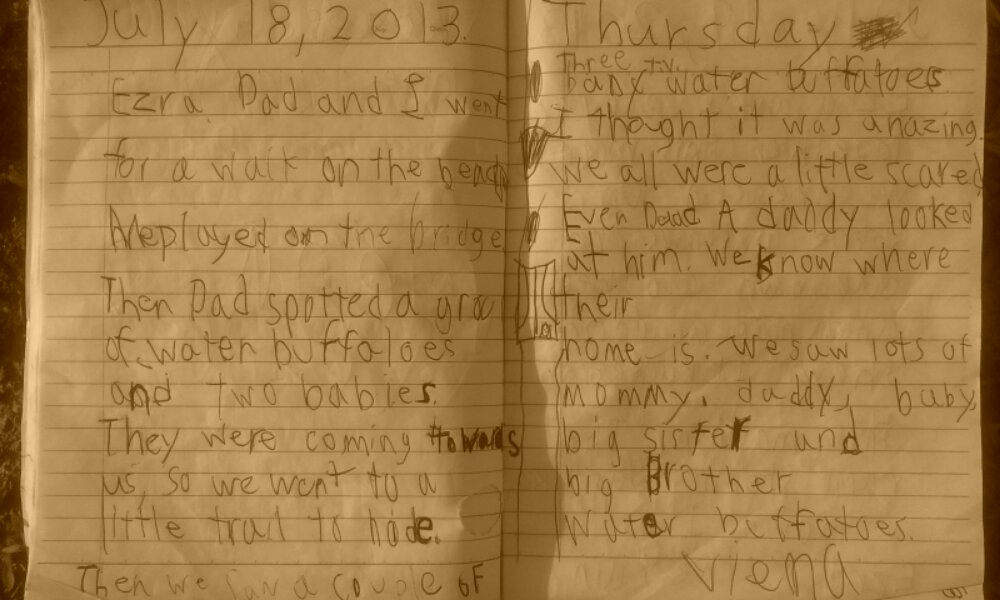 July 18, 2013.
Ezra Dad and I went
for a walk on the beach
We played on the bridge
Then Dad spotted a
of water buffaloes
and two babies.
They were coming towards
us, so we went to a
little trail to hide.
Then we saw a couple of
Thursday
Three
baby water buffaloes
I thought it was amazing
we all were a little scared
Even Dad A daddy looked
at him. We know where
their
home is. We saw lots of
mommy, daddy, baby,
big sister and
big Brother
water buffaloes.
Viena